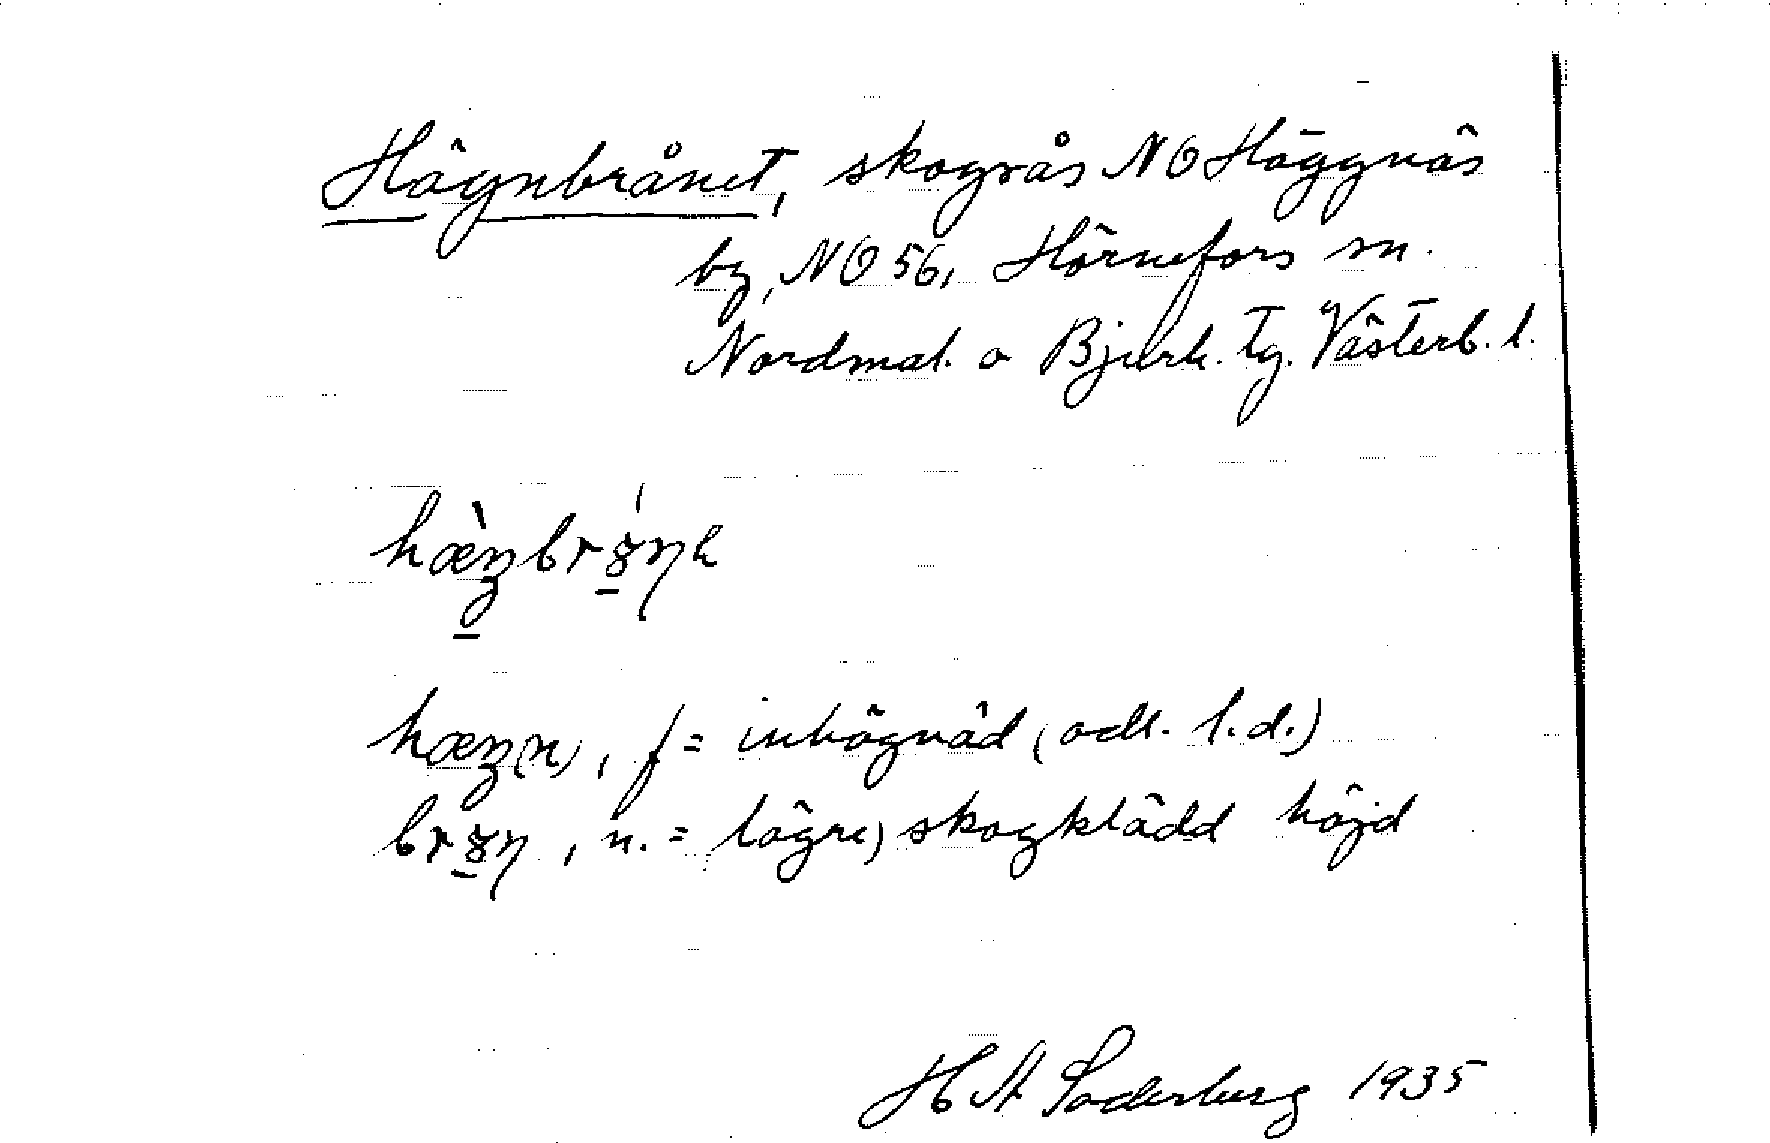 Hägnbrånet, skogsås NO Häggnäs
by, NO 56, Hörnefors sn.
Nordmal. o Bjurh. tg. Västerb. l.
hæ̀nbrånh
hæn(n), f = inhägnad (odl. l. d.)
brån, n. = lägre, skogklädd höjd
H A Söderberg 1935